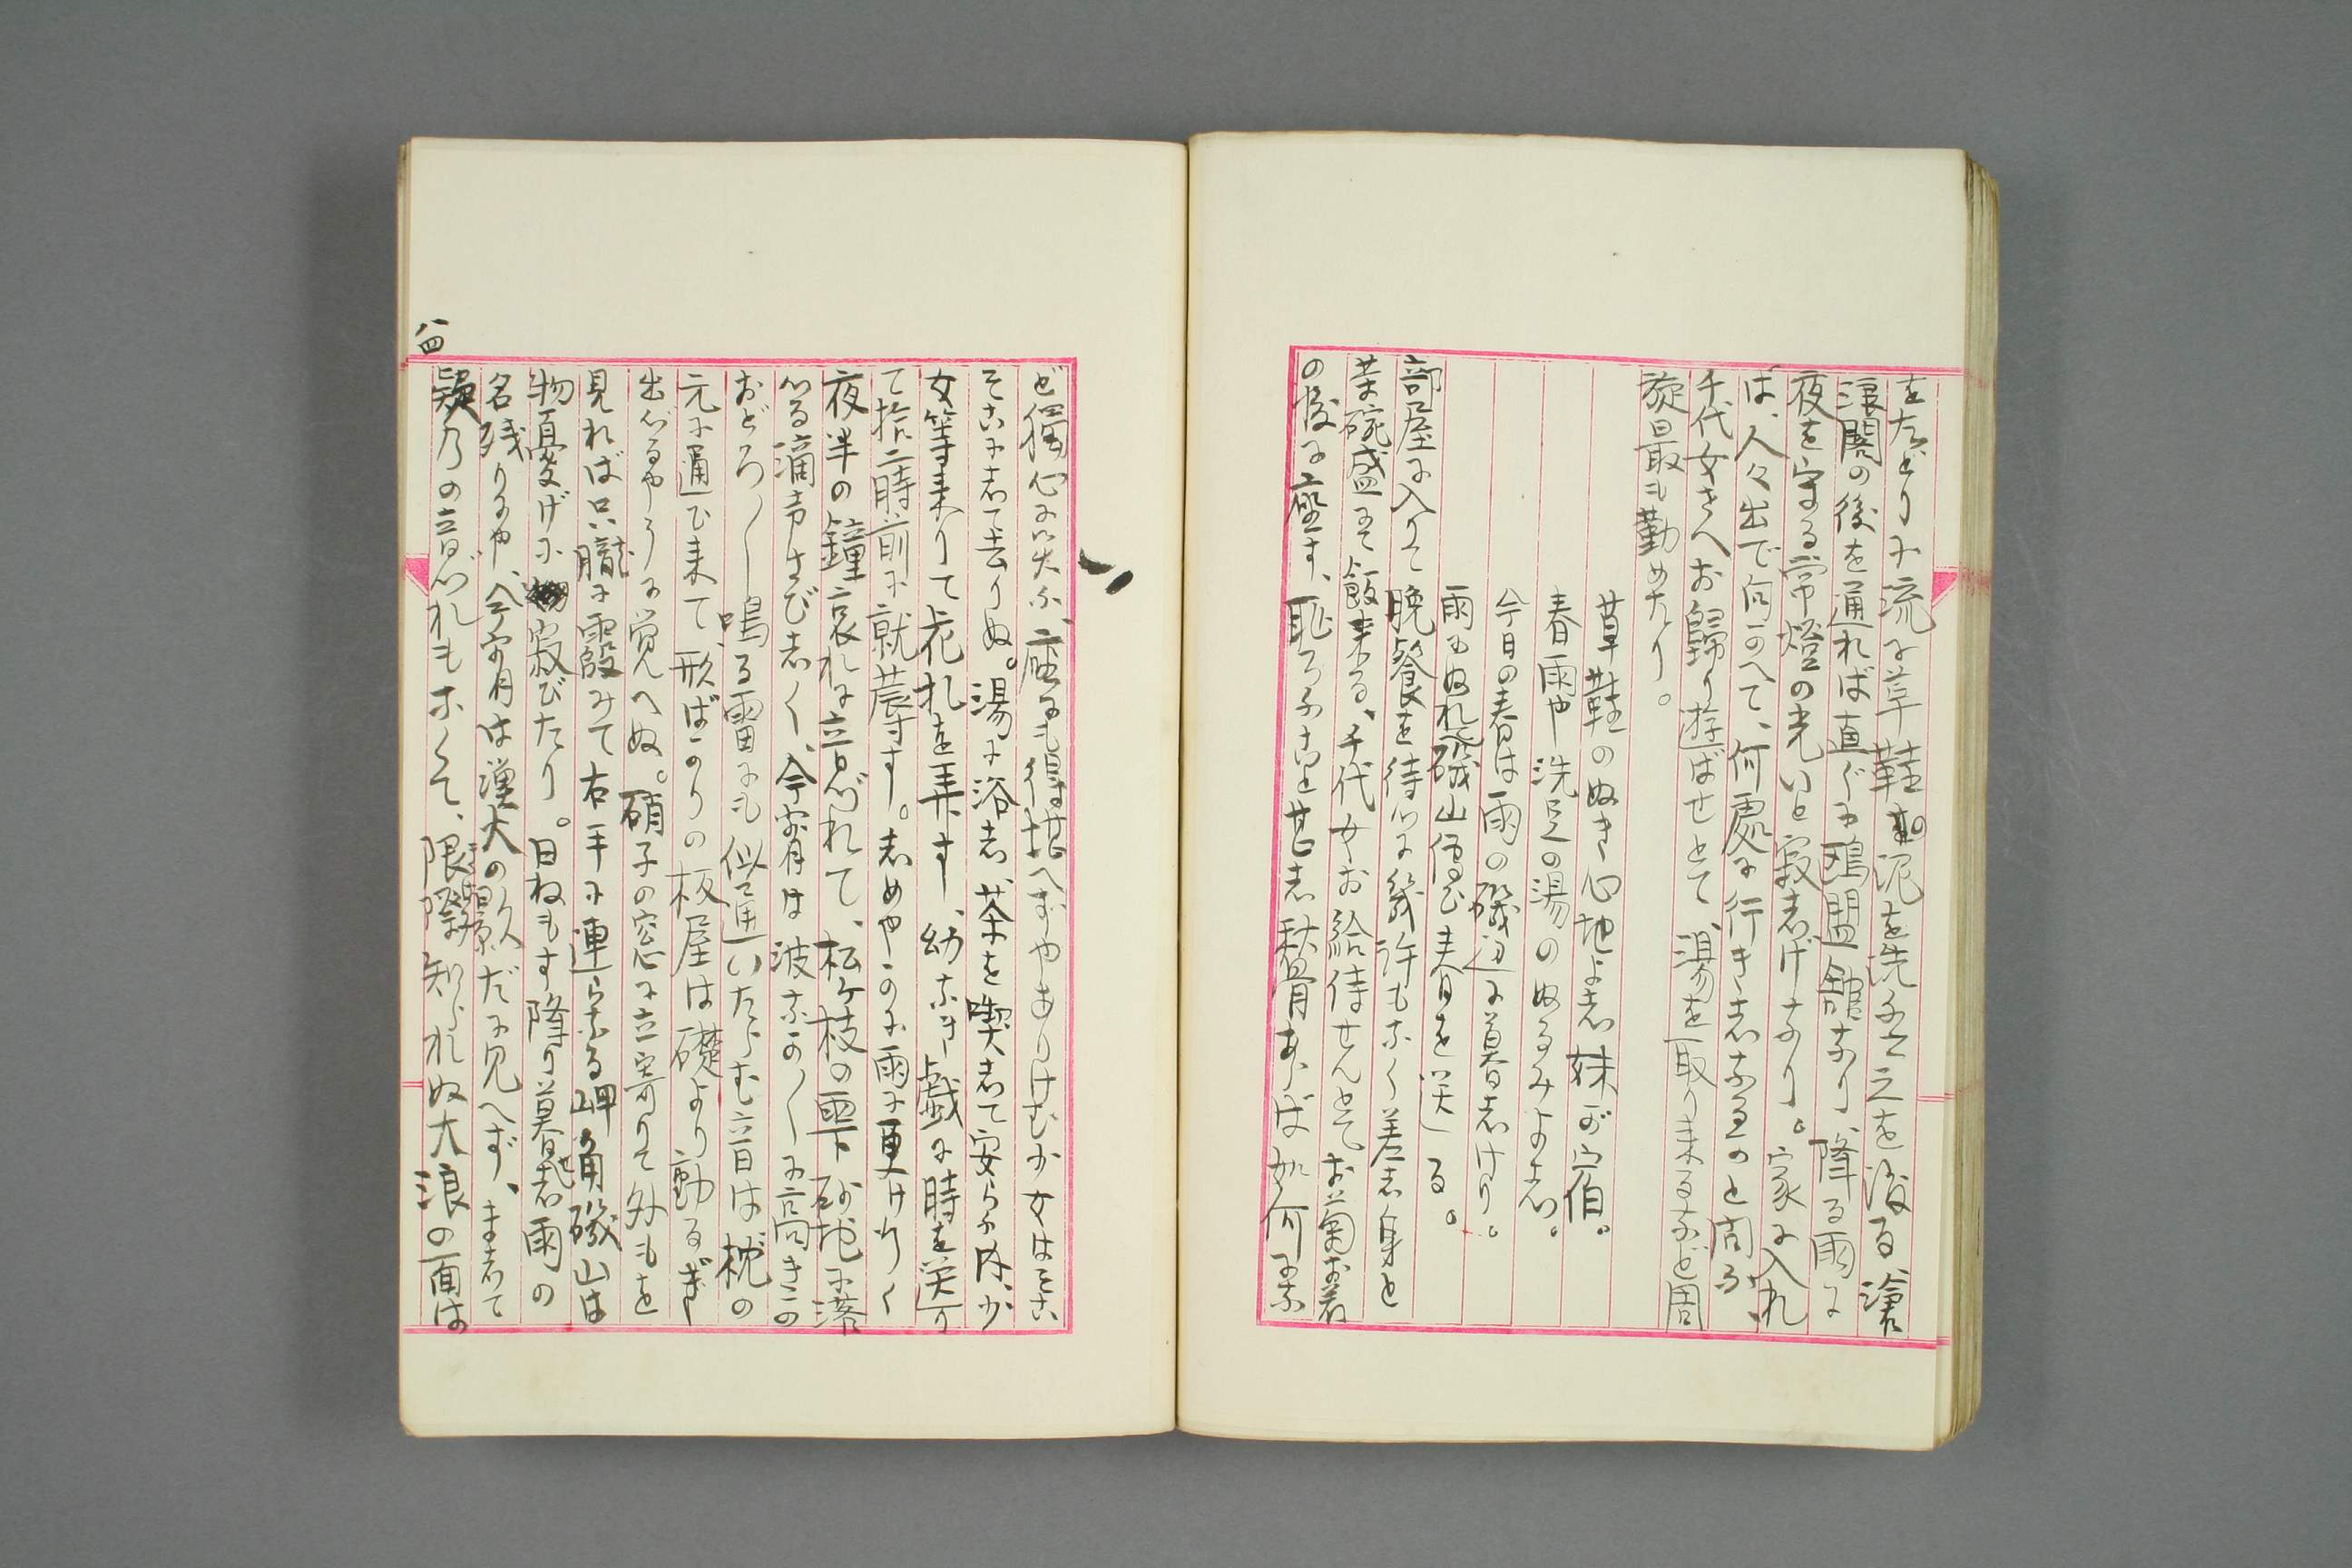 をたどりに流に草鞋の泥を洗ひ之を渡る、滄
浪閣の後を通れば直ぐに鴎盟館なり、降る雨に
夜を守る常燈の光いと寂志げなり。家に入れ
ば、人々出で向かへて、何處に行き志なるかと問ふ、
千代女さへお歸り遊ばせとて、湯を取り来るなど周
旋最も勤めたり。
草鞋のぬき心地よ志妹が宿。
春雨や洗足の湯のぬるみよ志。
今日の春は雨の磯辺に暮志けり。
雨にぬれて磯山傳ひ春を送る。
部屋に入りて晩餐を待つに幾許もなく差志身と
茶碗盛にて飯来る、千代女お給待せんとてお菊お若
の後に座す、恥ろふこと甚志秋骨あらば如何に
ど獨心に笑ふ、座にも得堪へずやありけむ少女はそこ
そこに志て去りぬ。湯に浴志、茶を喫志て安らふ内、少
女等来りて花札を弄す、幼なき戯に時を送り
て拾二時前に就蓐す。志めやかに雨に更け行く
夜半の鐘哀れに音づれて、松ヶ枝の雫砂地に落
つる滴声さび志く、今宵は波なか〳〵に高きか
おどろ〳〵鳴る雷にも似通いたらむ音は枕の
元に通ひ来て、形ばかりの板屋は礎より動るぎ
出づるやうに覚へぬ。硝子の窓に立寄りて外もを
見れば只朧に霞みて右手に連らなる岬角磯山は
物憂げに寂びたり。日ねもす降り暮せ志雨の
名残りにや、今宵月は漢大の影だに見へず、ま志て
欸乃の音づれもなくて、限際知られぬ大浪の面は
八四